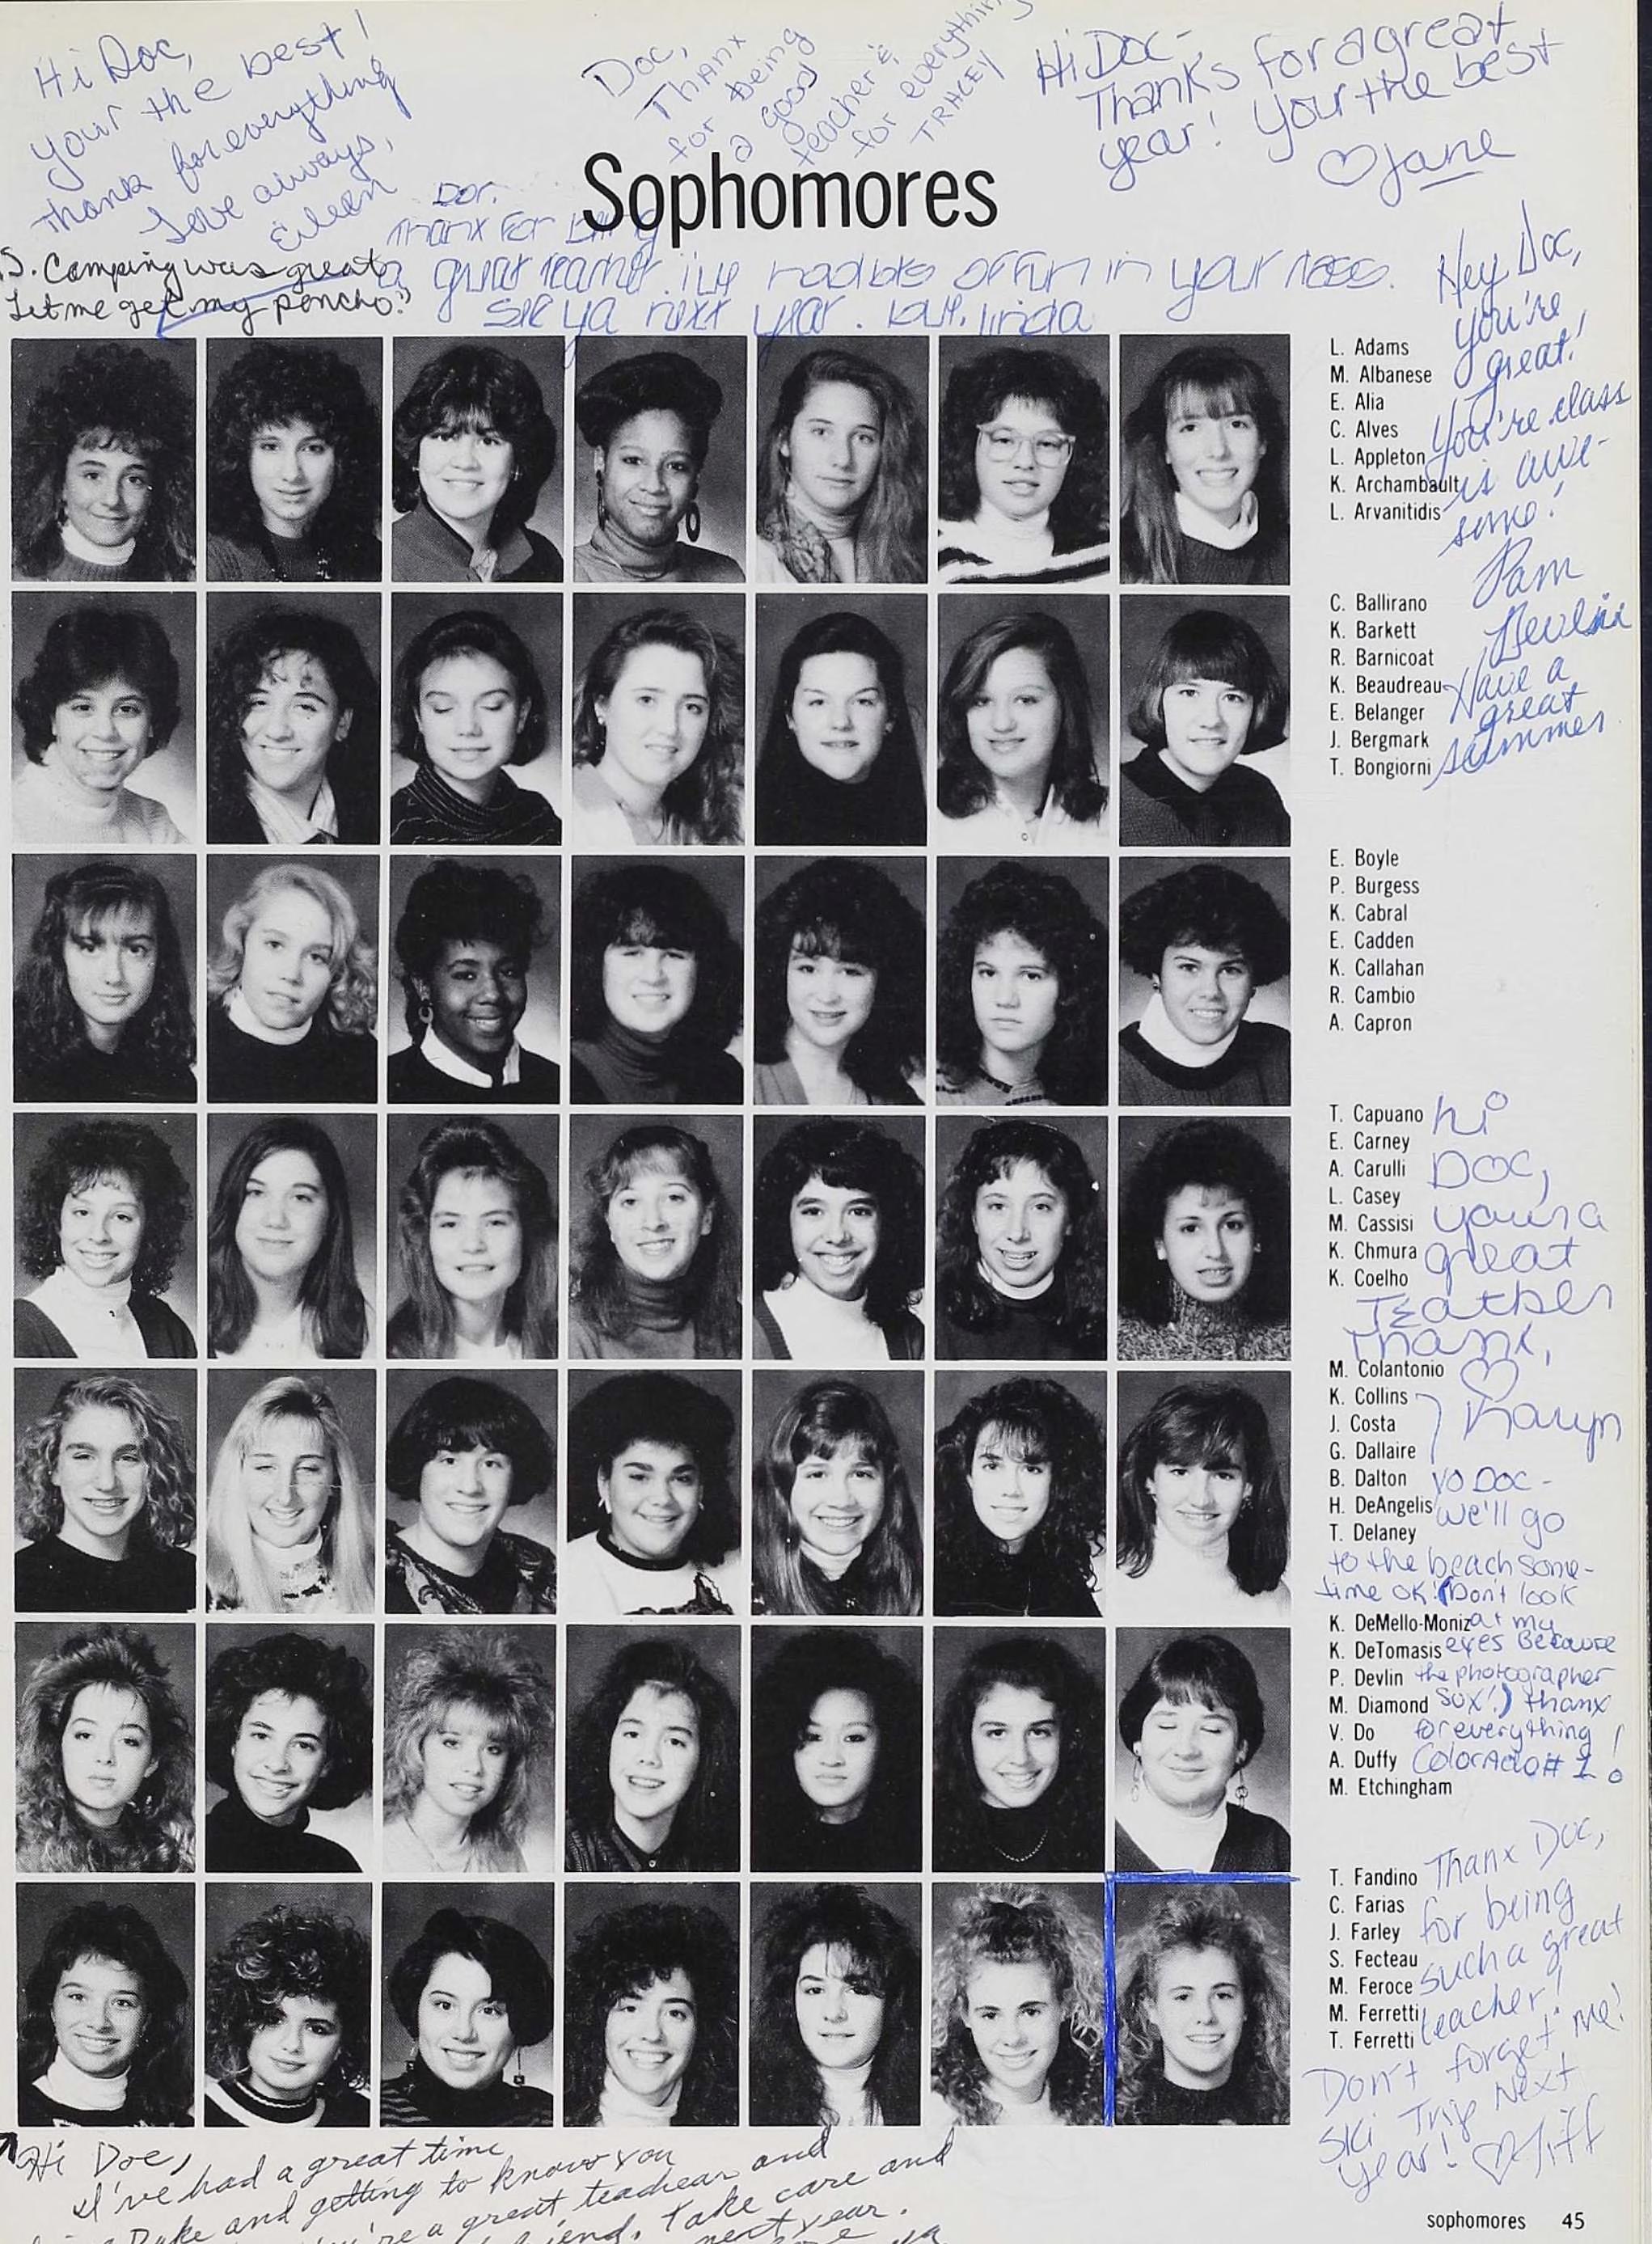 Hi Doc,
your the best!
thank for everything
Love always,
Eileen
P.S. Camping was great
"Let me get my poncho."
Doc,
Thanx
for being
a good
teacher &
for everything
TRACEY
Hi Doc-
Thanks for a great
year! Your the best
♡ Jane
Sophomores
Doc.
Thanx for being
a great teacher. I've had lots of fun in your class.
see ya next year. Love, Linda
Hey Doc,
you're
great!
You're class
is awe-
some!
Pam
Devlin
Have a
great
summer
L. Adams
M. Albanese
E. Alia
C. Alves
L. Appleton
K. Archambault
L. Arvanitidis
C. Ballirano
K. Barkett
R. Barnicoat
K. Beaudreau
E. Belanger
J. Bergmark
T. Bongiorni
E. Boyle
P. Burgess
K. Cabral
E. Cadden
K. Callahan
R. Cambio
A. Capron
T. Capuano
E. Carney
A. Carulli
L. Casey
M. Cassisi
K. Chmura
K. Coelho
hi
Doc,
your a
great
Teacher
Thanx,
♡
Karyn
M. Colantonio
K. Collins
J. Costa
G. Dallaire
B. Dalton
H. DeAngelis
T. Delaney
Yo Doc -
we'll go
to the beach some-
time ok! (Don't look
at my
eyes Because
the photographer
sux!) thanx
for everything!
Colorado # 1!
K. DeMello-Moniz
K. DeTomasis
P. Devlin
M. Diamond
V. Do
A. Duffy
M. Etchingham
T. Fandino
C. Farias
J. Farley
S. Fecteau
M. Feroce
M. Ferretti
T. Ferretti
Thanx Doc,
for being
such a great
teacher!
Don't forget me!
Ski Trip Next
Year! ♡ Tiff
Hi Doc,
I've had a great time
Duke and getting to know you
you're a great teacher and
friend. Take care and
next year.
sophomores 45